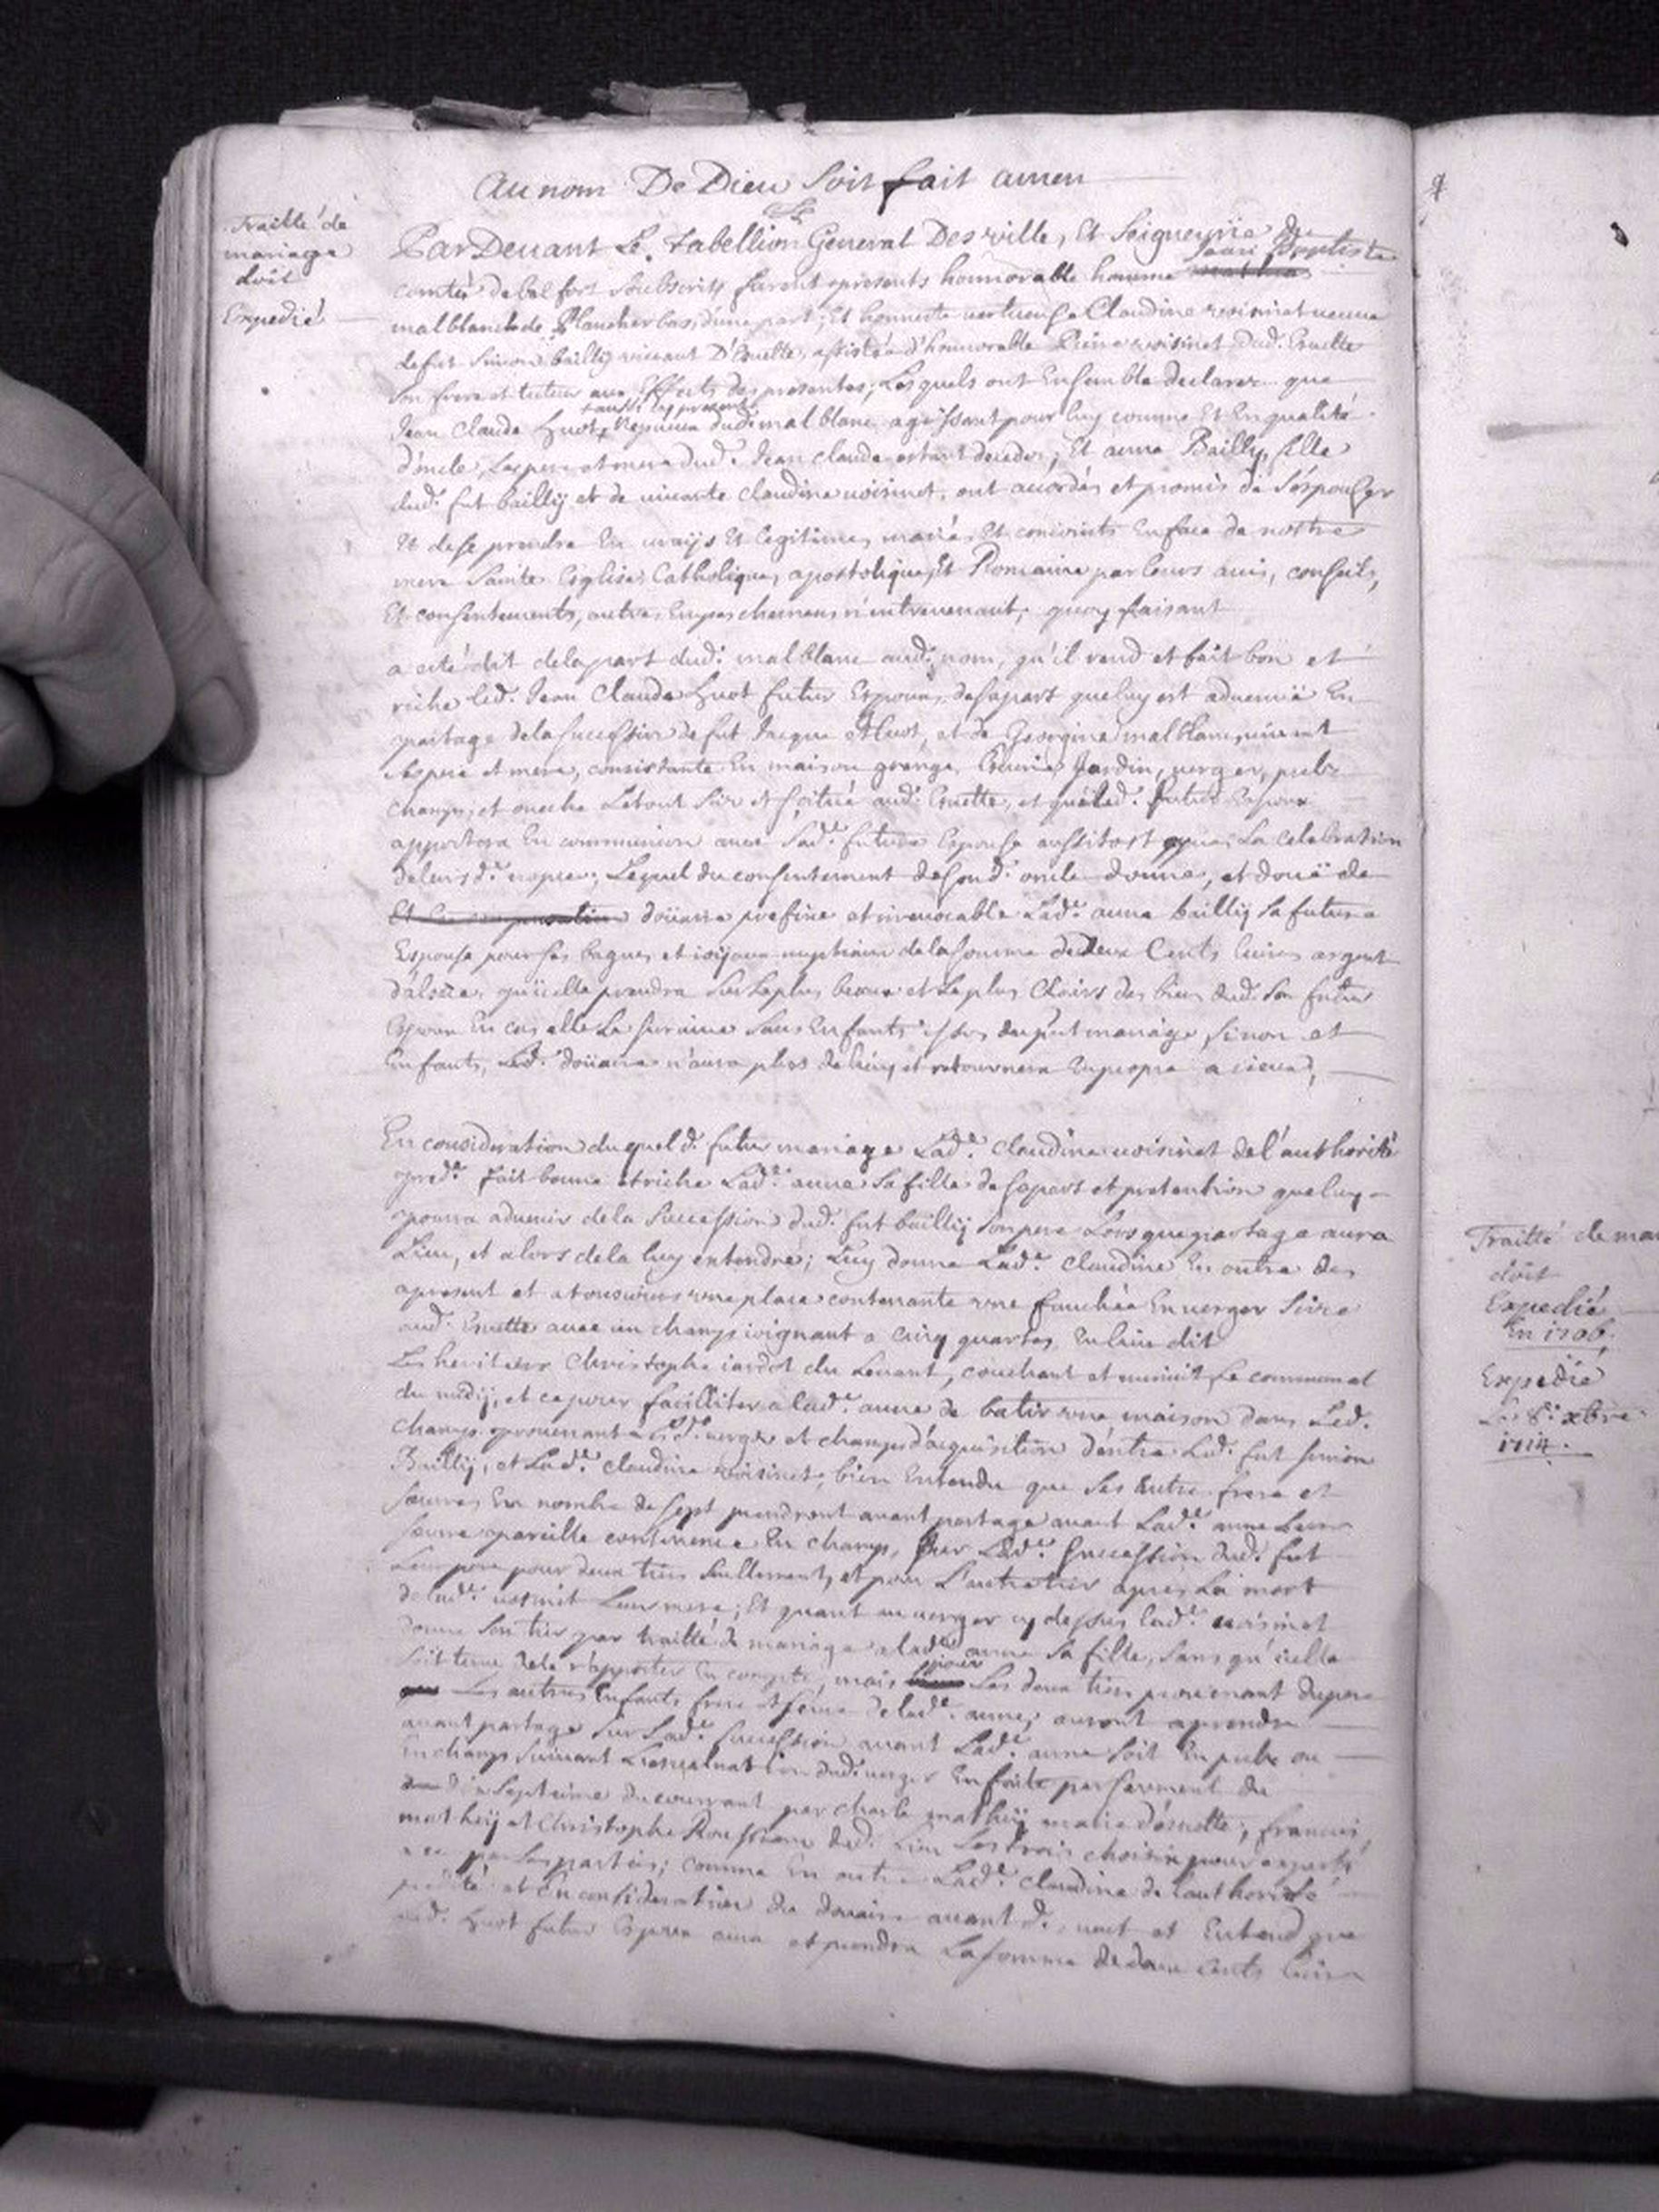 Au nom De Dieu Soit fait amen
Traitté de
mariage
doit
Expedié
Par Devant Le Tabellion General Des ville, Et Seigneurie du
comté de belfort soubscrit furent presents honnorable homme Jean Baptiste
malblanc de Plancher bas, d'une part; Et honneste vertueuse Claudine voisinet veuve
de fut Simon bailly vivant D'Eruette, assistée d'honnorable Pierre voisinet dud. Eruette
son frere et tuteur aux Effects des presentes, Lesquels ont Ensemble declarez que
Jean Claude Huot, aussi cy present Nepveux dud. malblanc agissant pour luy comme Et En qualité
d'oncle, Les pere et mere dud. Jean claude estant decedes; Et anne Bailly, fille
dud. fut bailly et de vivante claudine voisinet, ont accordés et promis de S'espouser
Et de se prendre En vraijs Et legitimes mariés Et conioints En face de nostre
mere Sainte Eglise Catholique, apostolique, Et Romaine par leurs avis, conseils,
Et consentements, autres Empeschemens n'intrevenant; quoy faisant
a esté dit de la part dud. malblanc aud. nom, qu'il rend et fait bon et
riche led. Jean Claude Huot futur Espoux, de sa part que luy est advenuë En
partage de la succession de fut Jacque Huot, et de Georgine malblanc, vivant
ses pere et mere, consistante En maison grange, Ecurie Jardin, verger, prelz
champs, et ouche Le tout Sis et scitué aud. Eruette, et que led. futur Espoux
apportera En communion avec Lad.e future Espouse aussitost apres La celebration
de leursd. nopces; Lequel du consentement de sond. oncle donne, et douë de
doüaire prefixe et irrevocable Lad.e anne bailly sa future
Espouse pour ses bagues et ioijaux nuptiaux de la somme de deux Cents livres argent
d'alsace, qu'icelle prendra sur Le plus beaux et Le plus Clairs des biens dud. son futur
Espoux En cas elle Le survive sans Enfants issus du pnt mariage, sinon et
Enfants, Led. doüaire n'aura plus de lieu, et retournera En propre a iceux,
En consideration duquel d. futur mariage Lad.e claudine voisinet de l'authorité
pred.e fait bonne et riche Lad.e anne sa fille de sa part et pretention que luy
pourra advenir de la succession dud. fut bailly son pere Lors que partage aura
Lieu, et alors de la luy entendre; Luy donne Lad.e claudine En outre des
apresent et a tousiours une place contenante une fauchée En verger Sise
aud. Eruette avec un champs ioignant a cinq quartes, En lieu dit
Les heritiers Christophe iardot du Levant, couchant et minuit, Le communal
du midy, et ce pour facilliter a lad.e anne de batir une maison dans Led.
champs provenant Led. verger et champs d'acquisition d'entre Led. fut simon
Bailly, et Lad.e claudine voisinet; bien Entendu que Ses autre frere et
soeures En nombre de sept prendront avant partage avant Lad.e anne Leur
soeure pareille contenence En champs, sur Lad.e succession dud. fut
Leur pere pour deux tiers seullement, et pour L'autre tier apres La mort
de lad.e voisinet Leur mere; Et quant au verger cy dessus lad.e voisinet
donne son tier par traitté de mariage a lad.e anne sa fille, sans qu'icelle
soit tenue de le rapporter En compte, mais pour Les deux tiers provenant du pere
Les autres Enfants frere et soeurs de lad.e anne, auront a prendre
avant partage sur Lad.e succession avant Lad.e anne soit En prelz ou
En champs suivant L'esvaluation dud. verger En faite par serment du
dix septieme du courrant par charle mathey maire d'eruette, francois
mathey et Christophe Rousseau dud. Lieu Les trois choisis pour experts
par Les parties; comme En outre Lad.e claudine de l'authorité
et En consideration du douaire avant d. veut et Entend que
Huot futur Espoux aura et prendra La somme de deux cents livres
Traitté de mar
doit
Expedié
En 1706.
Expedié
Le 8.e xbre
1714.